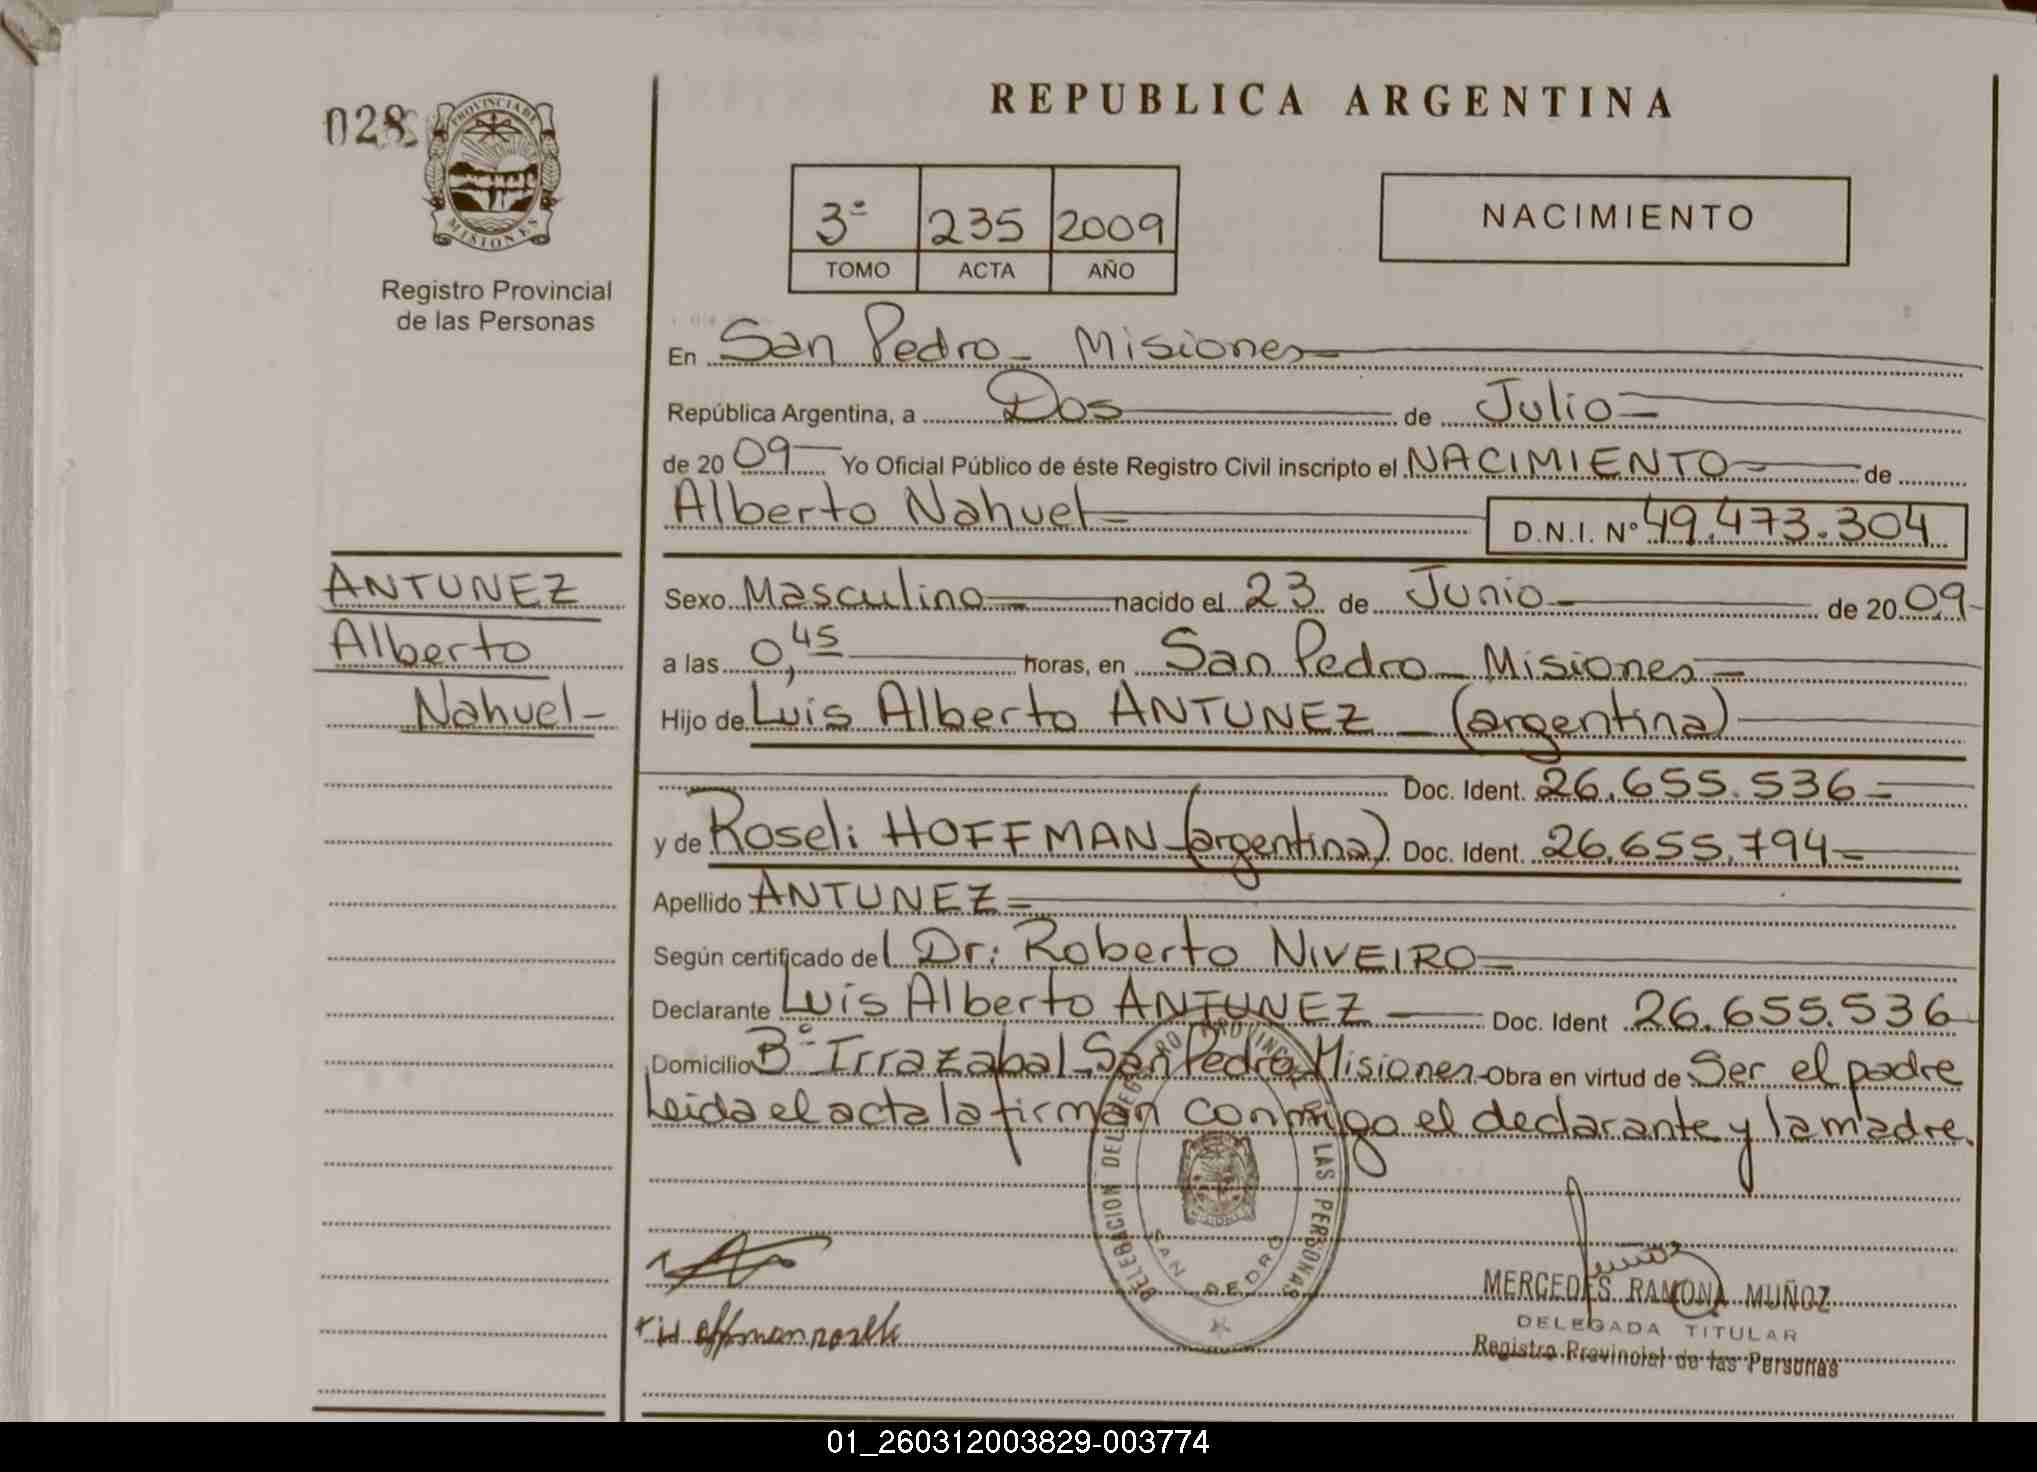 028
PROVINCIA DE
MISIONES
Registro Provincial
de las Personas
REPUBLICA ARGENTINA
3º 235 2009
TOMO ACTA AÑO
NACIMIENTO
En San Pedro - Misiones
República Argentina, a Dos de Julio
de 2009 Yo Oficial Público de éste Registro Civil inscripto el NACIMIENTO de
Alberto Nahuel D.N.I. Nº 49.473.304
ANTUNEZ
Alberto
Nahuel
Sexo Masculino nacido el 23 de Junio de 2009
a las 0,45 horas, en San Pedro - Misiones
Hijo de Luis Alberto ANTUNEZ (argentina)
Doc. Ident. 26.655.536
y de Roseli HOFFMAN (argentina) Doc. Ident. 26.655.794
Apellido ANTUNEZ
Según certificado del Dr: Roberto NIVEIRO
Declarante Luis Alberto ANTUNEZ Doc. Ident 26.655.536
Domicilio Bº Irrazabal - San Pedro Misiones Obra en virtud de Ser el padre
Leida el acta la firman conmigo el declarante y la madre.
DELEGACION DEL REGISTRO PROVINCIAL DE LAS PERSONAS
SAN PEDRO
MERCEDES RAMONA MUÑOZ
DELEGADA TITULAR
Registro Provincial de las Personas
01_260312003829-003774